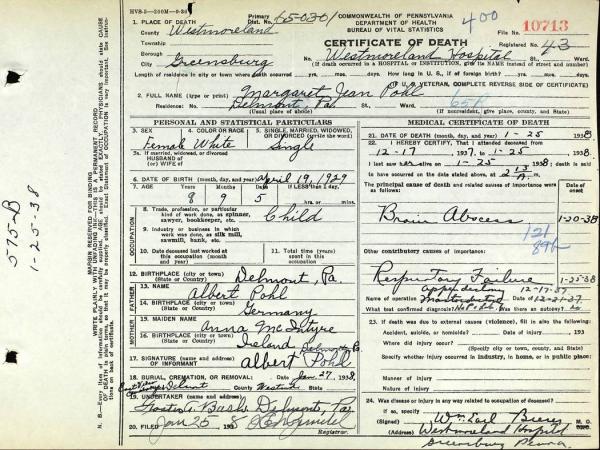 HVS-5—200M—9-36
Primary
Dist. No. 65-030-01
COMMONWEALTH OF PENNSYLVANIA
DEPARTMENT OF HEALTH
BUREAU OF VITAL STATISTICS
400
FILE No. 10713
Registered No. 43
1. PLACE OF DEATH
County Westmoreland
CERTIFICATE OF DEATH
Township
Borough
City Greensburg
No. Westmoreland Hospital St., Ward.
(If death occurred in a HOSPITAL or INSTITUTION, give its NAME instead of street and number)
Length of residence in city or town where death occurred yrs. mos. days. How long in U. S., if of foreign birth? yrs. mos. days.
2. FULL NAME (type or print) Margaret Jean Pohl
U. S. VETERAN, COMPLETE REVERSE SIDE OF CERTIFICATE)
Residence: No. Delmont, Pa. St., Ward.
(Usual place of abode)
(If nonresident, give place, county, and State)
PERSONAL AND STATISTICAL PARTICULARS
3. SEX
Female
4. COLOR OR RACE
White
5. SINGLE, MARRIED, WIDOWED, OR DIVORCED (write the word)
Single
5a. If married, widowed, or divorced
HUSBAND of
(or) WIFE of
6. DATE OF BIRTH (month, day, and year) April 19, 1929
7. AGE Years Months Days If LESS than 1 day,
8 9 5 hrs. or mins.
OCCUPATION
8. Trade, profession, or particular kind of work done, as spinner, sawyer, bookkeeper, etc. Child
9. Industry or business in which work was done, as silk mill, sawmill, bank, etc.
10. Date deceased last worked at this occupation (month and year)
11. Total time (years) spent in this occupation
12. BIRTHPLACE (city or town) Delmont, Pa.
(State or country)
FATHER
13. NAME Albert Pohl
14. BIRTHPLACE (city or town) Germany
(State or country)
MOTHER
15. MAIDEN NAME Anna McIntyre
16. BIRTHPLACE (city or town)
(State or country)
17. SIGNATURE (name and address) Albert Pohl
OF INFORMANT
Delmont Pa.
18. BURIAL, CREMATION, OR REMOVAL Date Jan 27, 1938
Place Delmont County Westmd State
19. UNDERTAKER (name and address)
Bash Delmont, Pa
20. FILED Jan 25 1938
Registrar.
MEDICAL CERTIFICATE OF DEATH
21. DATE OF DEATH (month, day, and year) 1-25 1938
22. I HEREBY CERTIFY, That I attended deceased from
12-17, 1937, to 1-25, 1938.
I last saw her alive on 1-25, 1938; death is said
to have occurred on the date stated above, at A.m.
The principal cause of death and related causes of importance were as follows:
Date of onset
Brain Abscess 1-20-38
Other contributory causes of importance:
Respiratory Failure 1-25-38
Name of operation Appendectomy Date of 12-17-37
Mastoidectomy 12-21-37
What test confirmed diagnosis? Was there an autopsy?
23. If death was due to external causes (violence), fill in also the following:
Accident, suicide, or homicide? Date of injury 193
Where did injury occur?
(Specify city or town, county, and State)
Specify whether injury occurred in industry, in home, or in public place:
Manner of Injury
Nature of Injury
24. Was disease or injury in any way related to occupation of deceased?
If so, specify
(Signed) Wm. Earl M. D.
(Address) Westmoreland Hospital
Greensburg Penna.
MARGIN RESERVED FOR BINDING
WRITE PLAINLY WITH UNFADING INK—THIS IS A PERMANENT RECORD
575-B
1-25-38